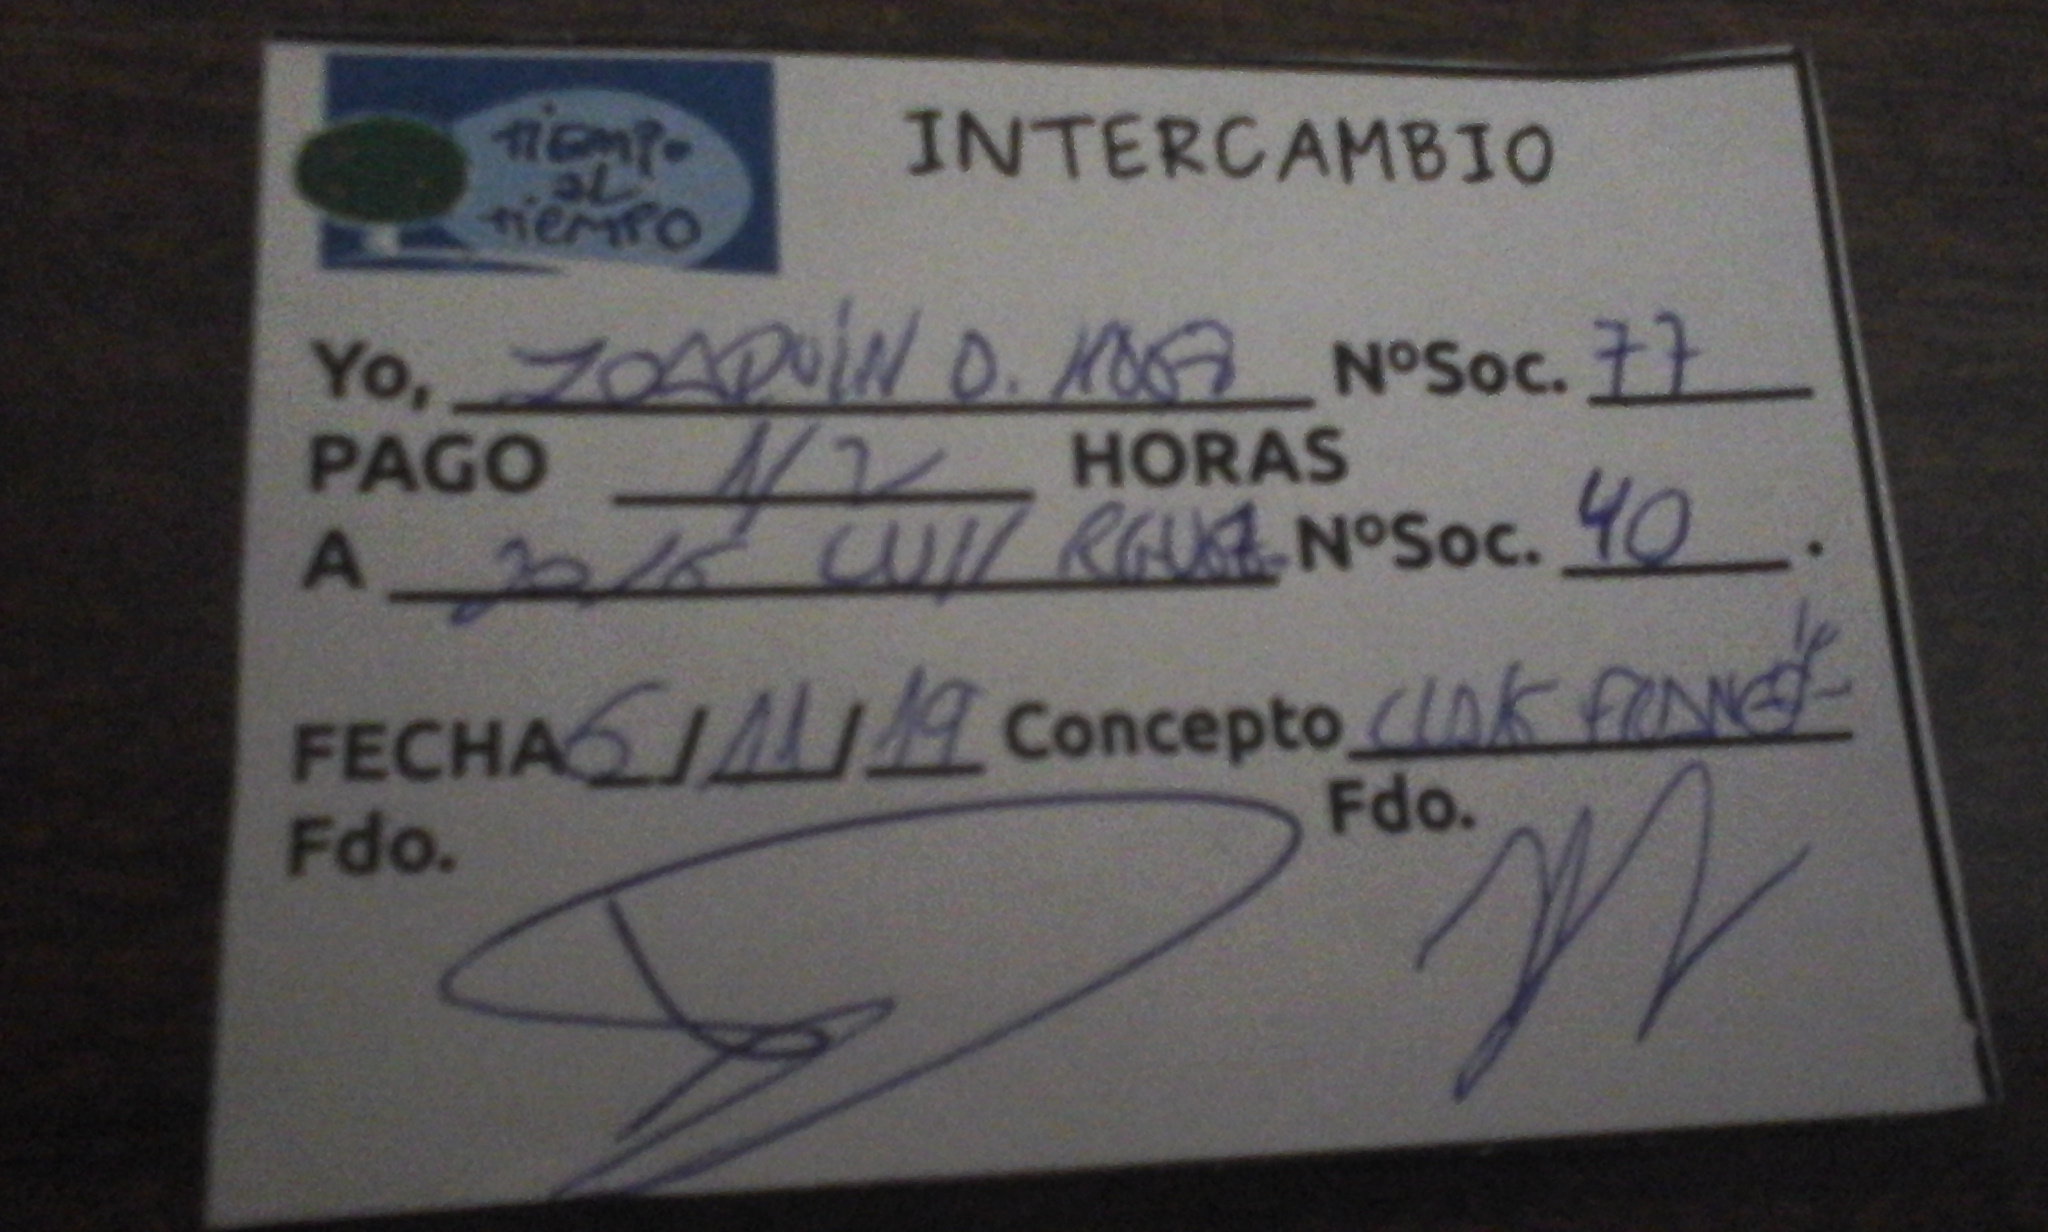 tiempo
al
tiempo
INTERCAMBIO
Yo, JOAQUÍN D. NºSoc. 77
PAGO 1/2 HORAS
A JOSE LUIS NºSoc. 40 .
FECHA 6/11/19 Concepto CLASE FRANCÉS
Fdo. Fdo.